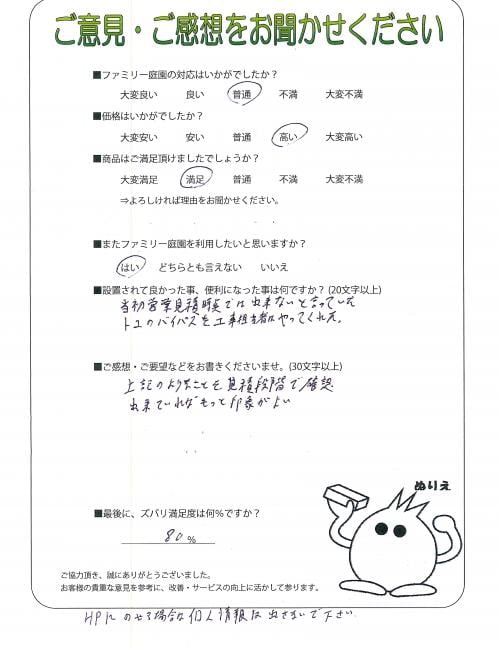 ご意見・ご感想をお聞かせください
■ファミリー庭園の対応はいかがでしたか？
大変良い 良い 普通 不満 大変不満
■価格はいかがでしたか？
大変安い 安い 普通 高い 大変高い
■商品はご満足頂けましたでしょうか？
大変満足 満足 普通 不満 大変不満
⇒よろしければ理由をお聞かせください。
■またファミリー庭園を利用したいと思いますか？
はい どちらとも言えない いいえ
■設置されて良かった事、便利になった事は何ですか？(20文字以上)
当初営業見積時点では出来ないと言っていた
トユのバイパスを工事担当者はやってくれた。
■ご感想・ご要望などをお書きくださいませ。(30文字以上)
上記のようなことを見積段階で確認
出来ていればもっと印象がよい
ぬりえ
■最後に、ズバリ満足度は何%ですか？
80%
ご協力頂き、誠にありがとうございました。
お客様の貴重な意見を参考に、改善・サービスの向上に活かして参ります。
HPにのせる場合は個人情報は出さないで下さい